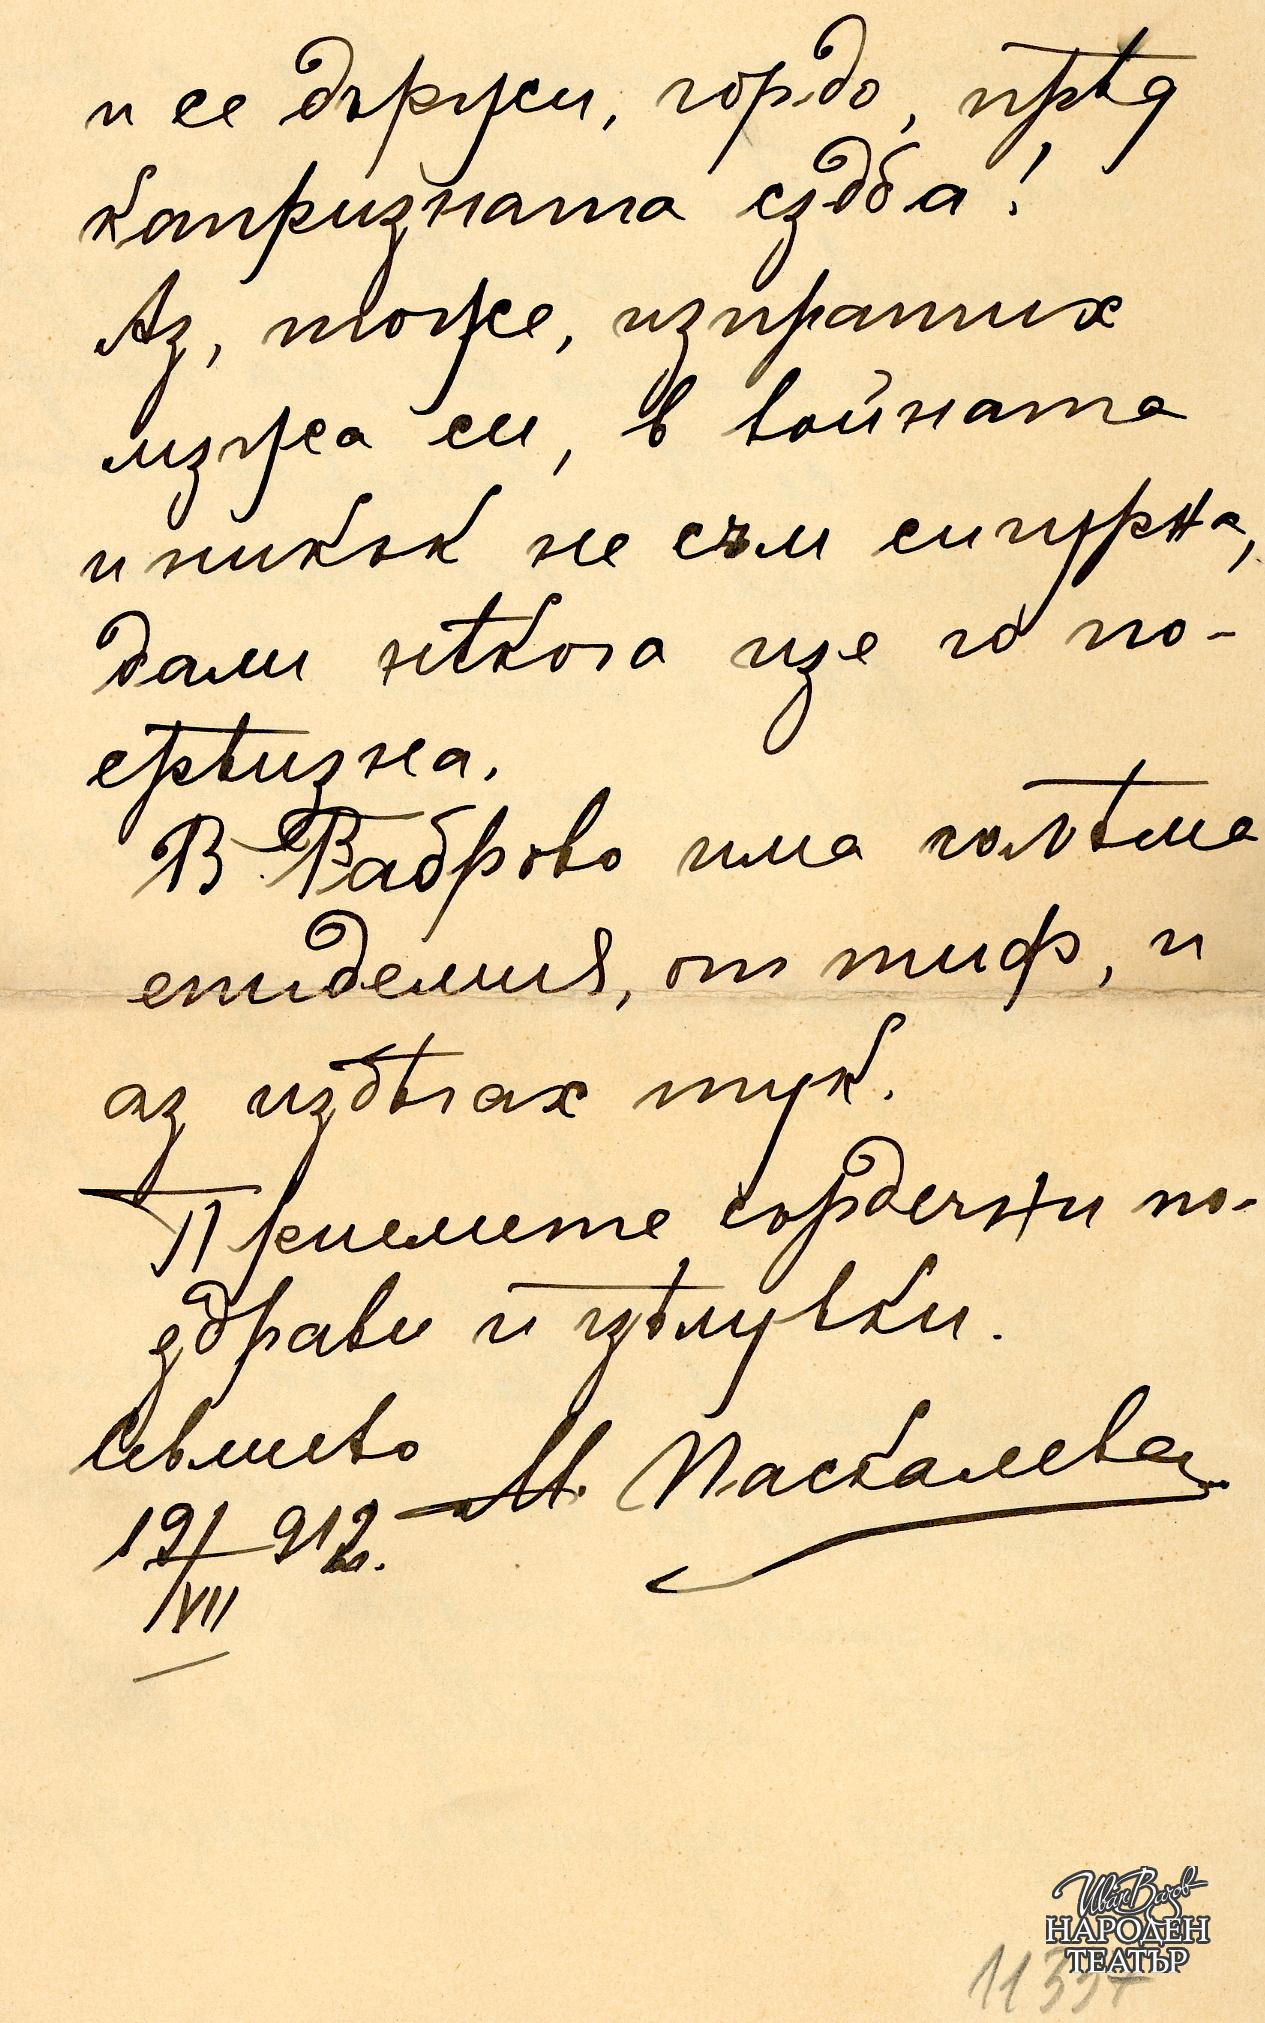 и се държи, гордо, прѣд
капризната съдба!
Аз, тоже, изпратих
мъжа си, в войната
и никак не съм сигурна,
дали нѣкога ще го по-
срѣщна.
В Габрово има голѣма
епидемия, от тиф, и
аз избѣгах тук.
Приемете сърдечни по-
здрави и цѣлувки.
Севлиево М. Паскалева
19/VII 912
Иван Вазов
НАРОДЕН
ТЕАТЪР